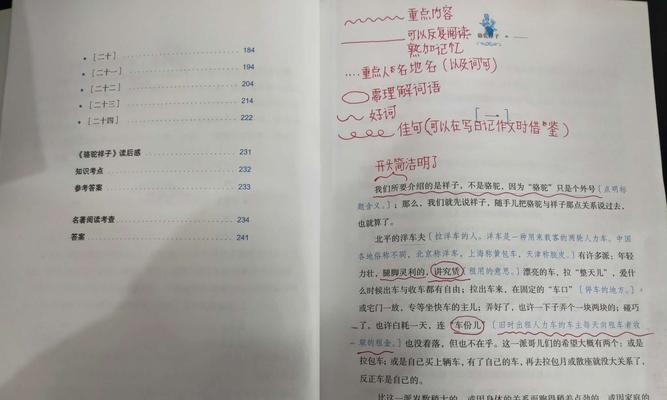 • [二十] 184
• [二十一] 194
• [二十二] 204
• [二十三] 214
• [二十四] 222
《骆驼祥子》读后感 231
知识考点 232
参考答案 233
名著阅读考查 234
答案 241
骆驼祥子
重点内容
可以反复阅读
熟加记忆
....重点人名地名(以及词句)
需理解词语
好词
佳句(可以在写日记作文时借鉴)
开头简洁明了
我们所要介绍的是祥子,不是骆驼,因为“骆驼”只是个外号[点明标
题含义。];那么,我们就先说祥子,随手儿把骆驼与祥子那点关系说过去,
也就算了。
北平的洋车夫[拉洋车的人。洋车是一种用来载客的两轮人力车,中国
各地俗称不同,北京称洋车,上海称黄包车,天津称胶皮。]有许多派:年轻
力壮,腿脚灵利的,讲究赁[租用的意思。]漂亮的车,拉“整天儿”,爱什
么时候出车与收车都有自由;拉出车来,在固定的“车口”[停车的地方。]
或宅门一放,专等坐快车的主儿;弄好了,也许一下子弄个一块两块的;碰巧
了,也许白耗一天,连“车份儿”[旧时出租人力车的车主每天向租车者收
取的租金。]也没着落,但也不在乎。这一派哥儿们的希望大概有两个:或是
拉包车;或是自己买上辆车,有了自己的车,再去拉包月或散座就没大关系了,
反正车是自己的。
比这一派岁数稍大的,或因身体的关系而跑得稍差点劲的,或因家庭的